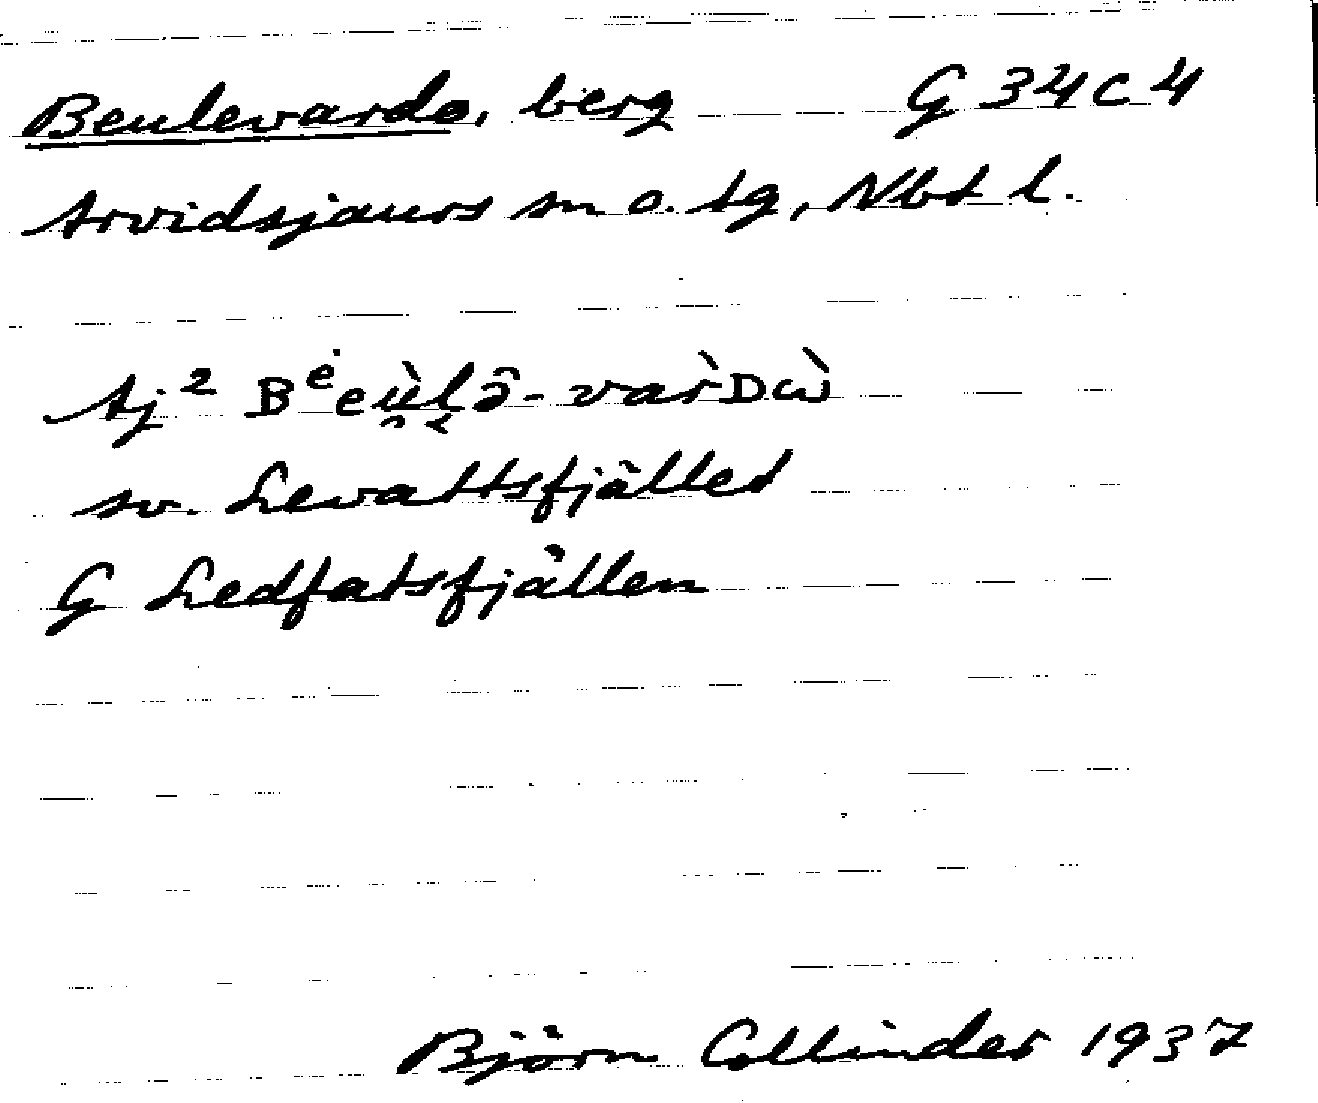 Beulevardo, berg G 34 C 4
Arvidsjaurs sn o. tg, Nbt l.
Aj² Bᵉ̇eù̯l̬ə̑-var̀Dὼ
sv. Levattsfjället
G Ledfatsfjällen
Björn Collinder 1937